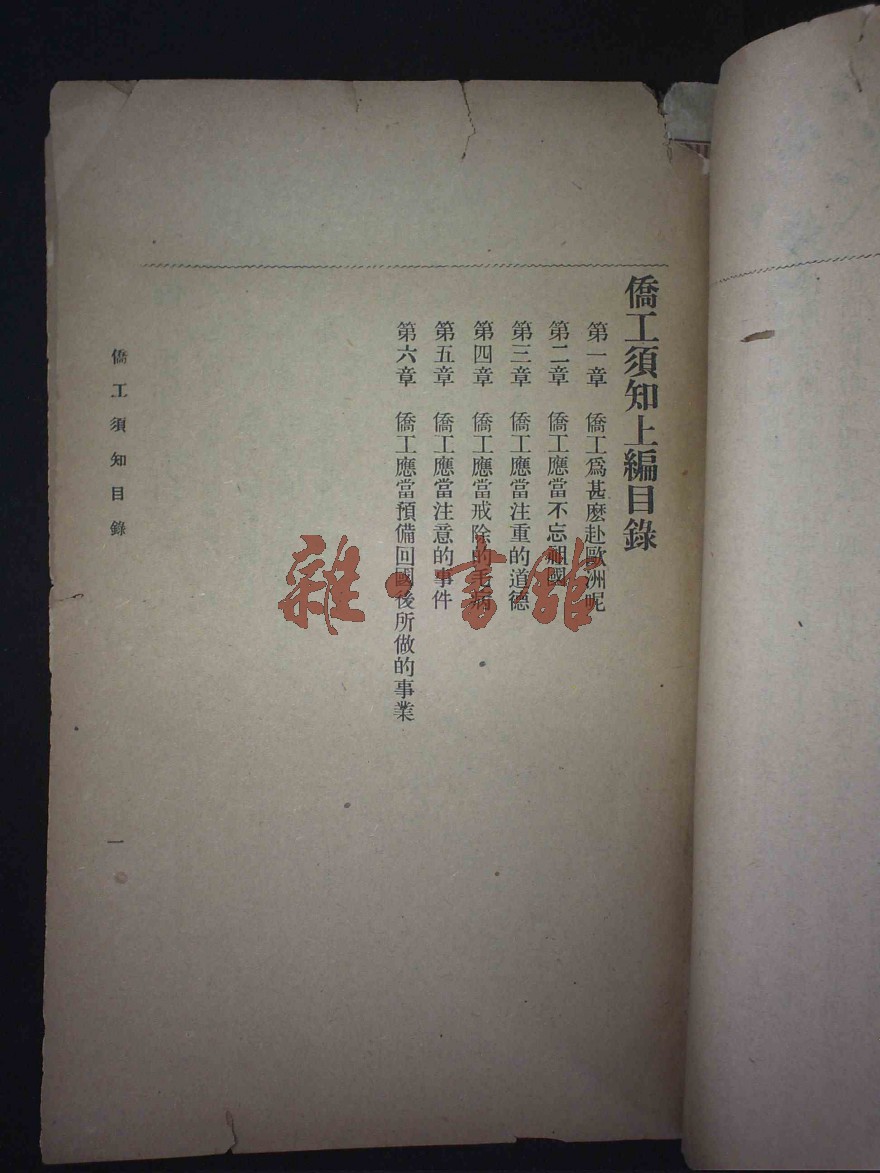 僑工須知上編目錄
第一章 僑工爲甚麽赴歐洲呢
第二章 僑工應當不忘祖國
第三章 僑工應當注重的道德
第四章 僑工應當戒除的毛病
第五章 僑工應當注意的事件
第六章 僑工應當預備回國後所做的事業
僑工須知目錄
一
雜·書館